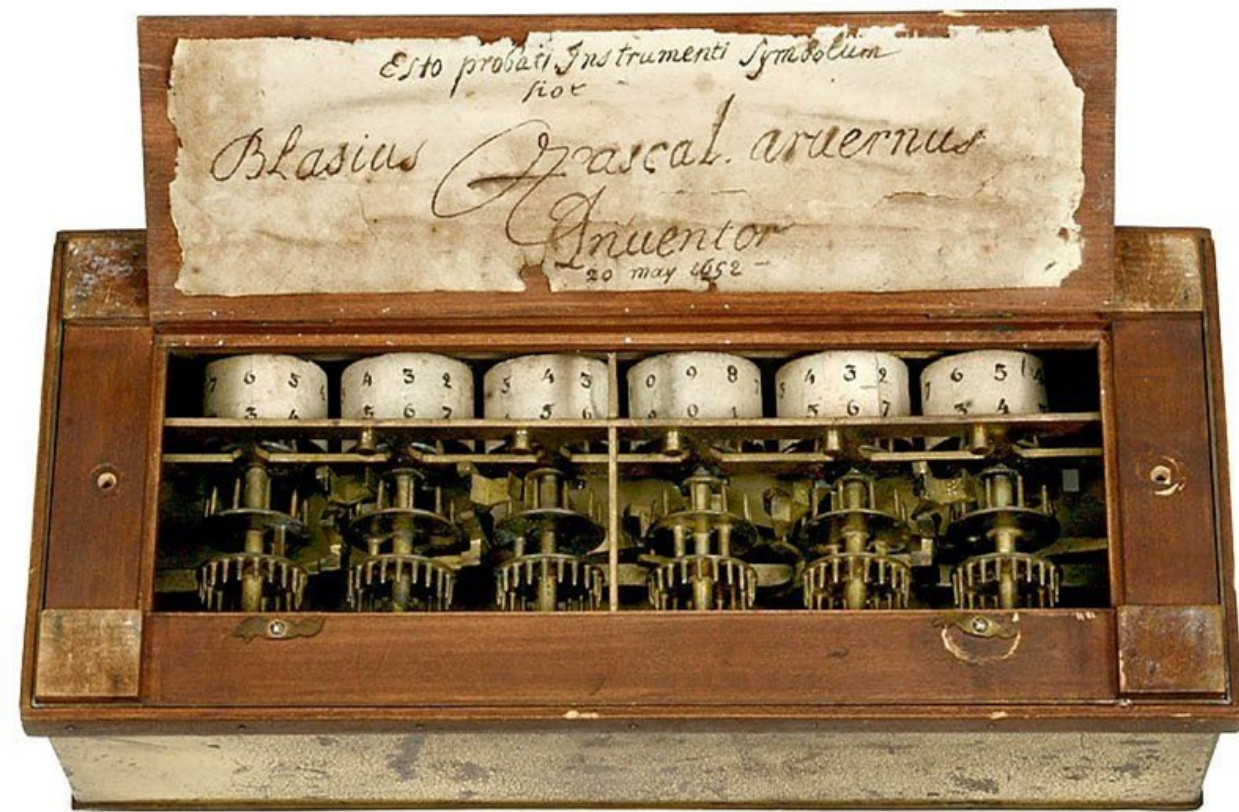 Esto probati Instrumenti Symbolum
hoc
Blasius Pascal. aruernus
Inuentor
20 may 1652
7 6 5 4 3 2 3 4 3 0 9 8 7 5 4 3 2 7 6 5 4
3 4 5 6 7 5 6 9 0 1 5 6 7 3 4